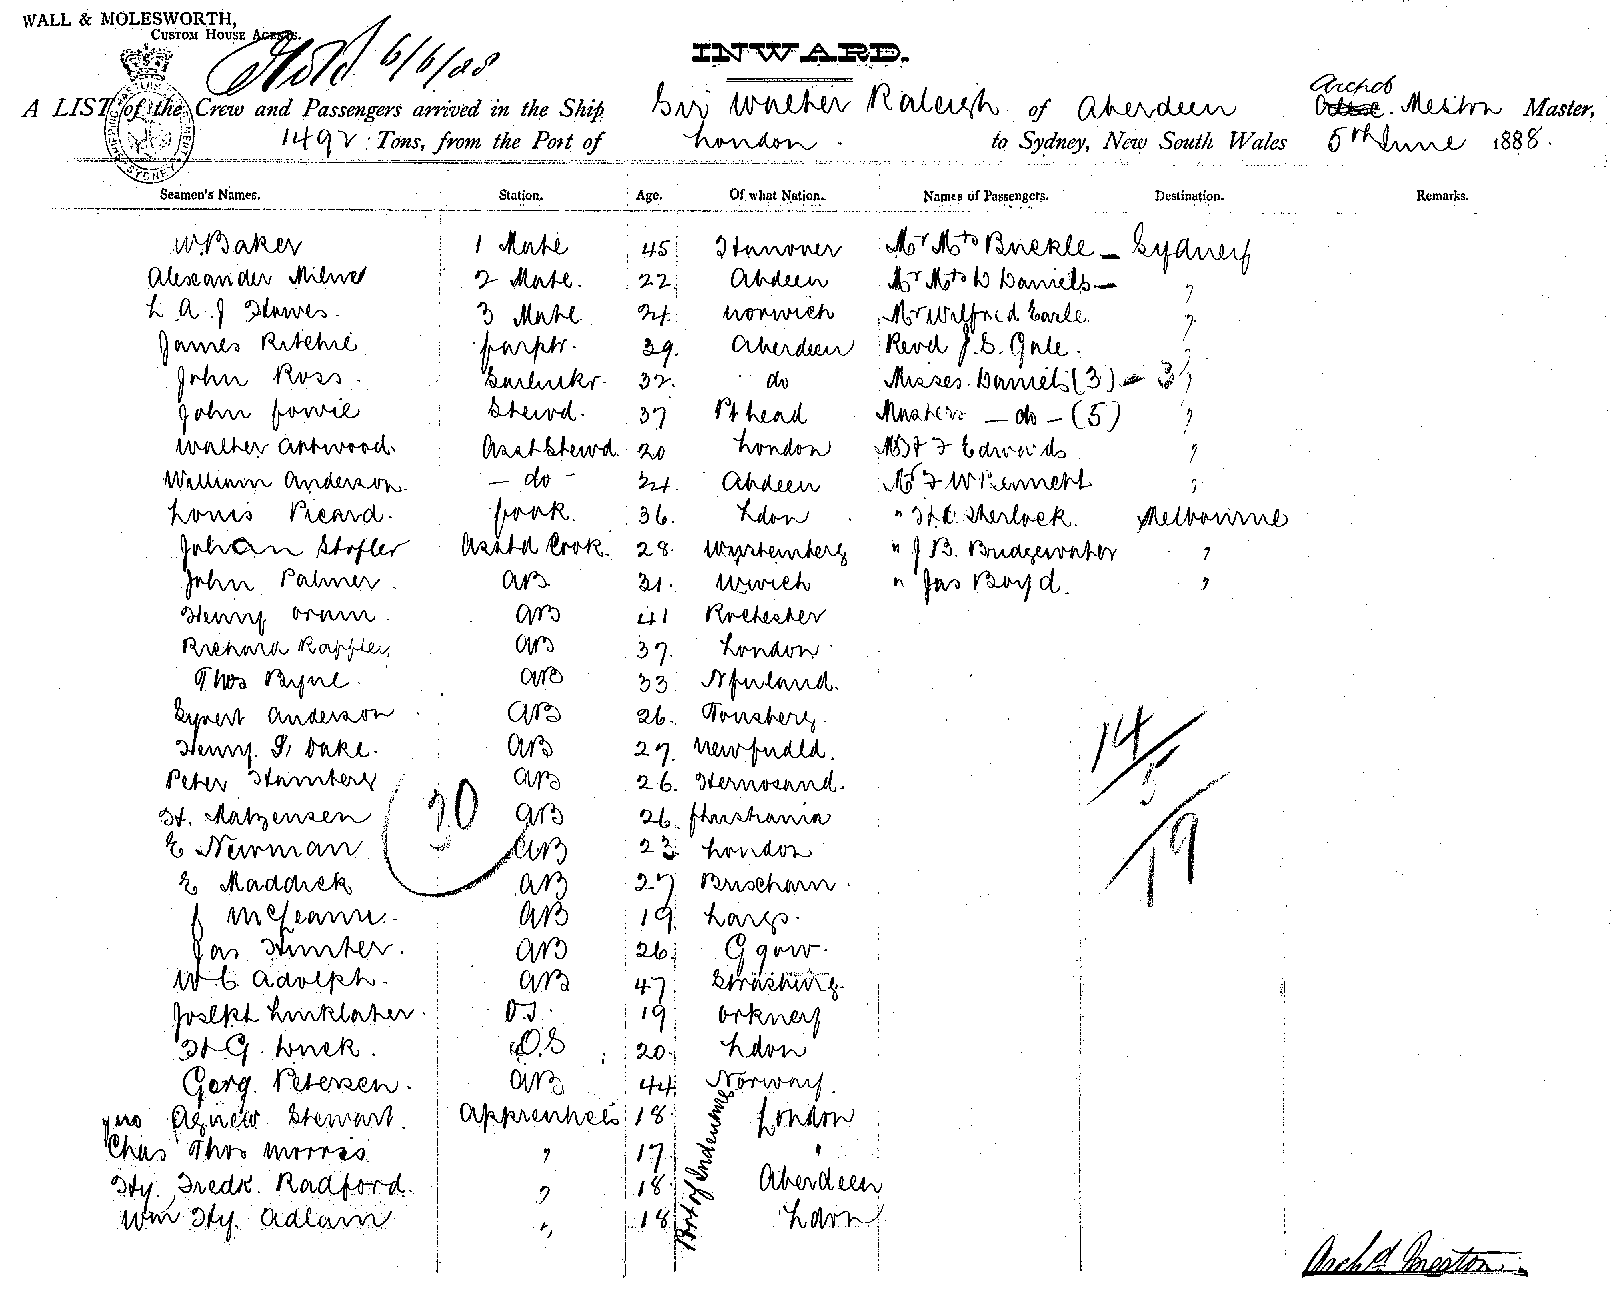 WALL & MOLESWORTH,
CUSTOM HOUSE AGENTS.
6/6/88
INWARD.
A LIST of the Crew and Passengers arrived in the Ship Sir Walter Raleigh of Aberdeen Archd Meston Master,
1492 Tons, from the Port of London to Sydney, New South Wales 5th June 1888.
Seamen's Names. Station. Age. Of what Nation. Names of Passengers. Destination. Remarks.
W Baker 1 Mate 45 Hanover Mr Mrs Buckle - Sydney
Alexander Milne 2 Mate. 22 Abdeen Mr Mrs D Daniels - "
L A J Hawes. 3 Mate 24 Norwich Mr Wilfred Earle "
James Ritchie Carptr. 39. Aberdeen Revd J. S. Gale. "
John Ross. Sailmkr. 32. do Misses Daniels (3) - 3 "
John Cowie Stewd. 37 Pthead Masters - do - (5) "
Walter Attwood Asst Stewd 20 London Mr F Edwards "
William Anderson - do - 24. Abdeen Mr F W Bennett "
Louis Picard. Cook. 36. Ldon " H. C. Sherlock. Melbourne
Johan Stofler Asstd Cook. 28. Wurtemberg " J B. Bridgewater "
John Palmer AB 31. Wwich " Jas Boyd. "
Henry Oram. AB 41 Rochester
Richard Rappley AB 37. London
Thos Byrne. AB 33 Nfurland.
Syvert Anderson AB 26. Tonsberg.
Henry. Dake. AB 27. Newfndld.
Peter Hamberg AB 26. Hernosand.
H. Matzensen AB 26. Christiania
30
E Newman AB 23 London
E Maddick AB 27 Brixham.
J AB 19 Largs.
Jas Hunter. AB 26. Ggow.
W C Adolph. AB 47 Strasburg.
Joseph Linklater. OS. 19 Orkney
H G. Luck. O.S 20. Ldon
Gorg. Petersen. AB 44 Norway.
Agnew Stewart. Apprentices 18 London
Chas Thos Morris " 17 "
Hy. Fredk. Radford. " 18 Aberdeen
Wm Hy. Adlam " 18 Ldon
Port of Indenture
14
5
19
Archd Meston.